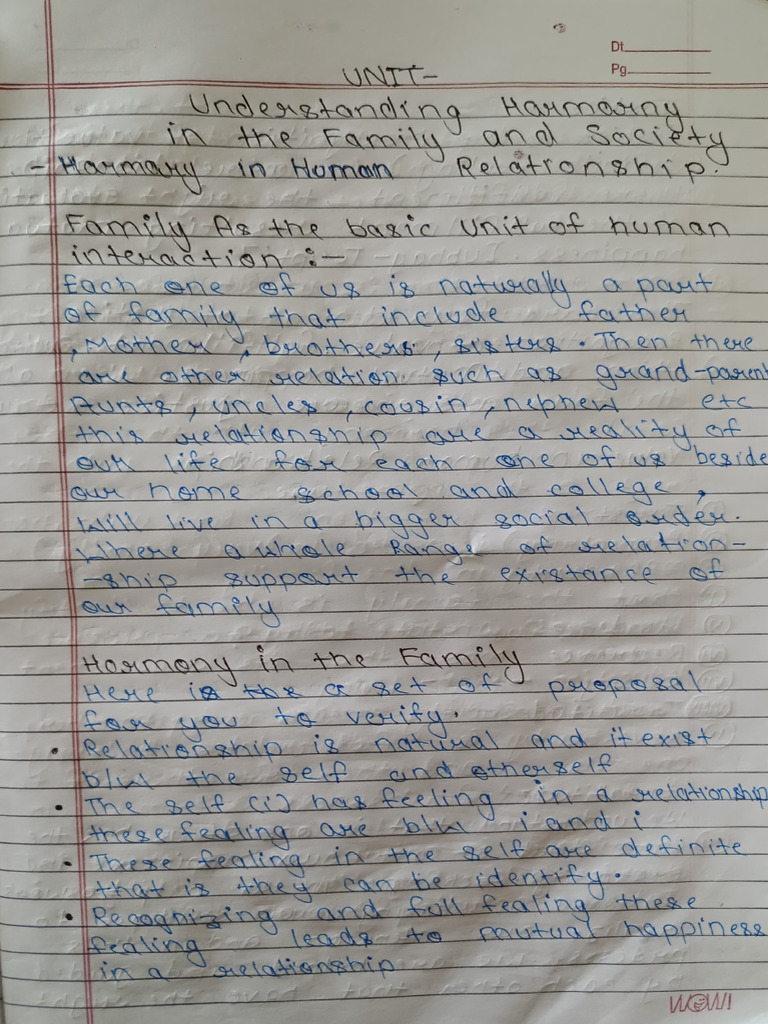 Dt.
Pg.
UNIT-
Understanding Harmarny
in the Family and Society
- Harmary in Human Relationship.
Family As the basic unit of human
interaction :-
Each one of us is naturally a part
of family that include father
, Mother , brothers , sisters . Then there
are other relation such as grand-parent
Aunts , uncles , cousin , nephew etc
this relationship are a reality of
our life for each one of us beside
our home school and college ,
Will live in a bigger social order.
Where a whole Range of relation-
-ship support the existance of
our family
Harmony in the Family
Here is a set of proposal
for you to verify.
• Relationship is natural and it exist
b/w the self and otherself
• The self (i) has feeling in a relationship
these fealing are b/w i and i
• These fealing in the self are definite
that is they can be identify.
• Recognizing and full fealing these
fealing leads to mutual happiness
in a relationship
WOW!